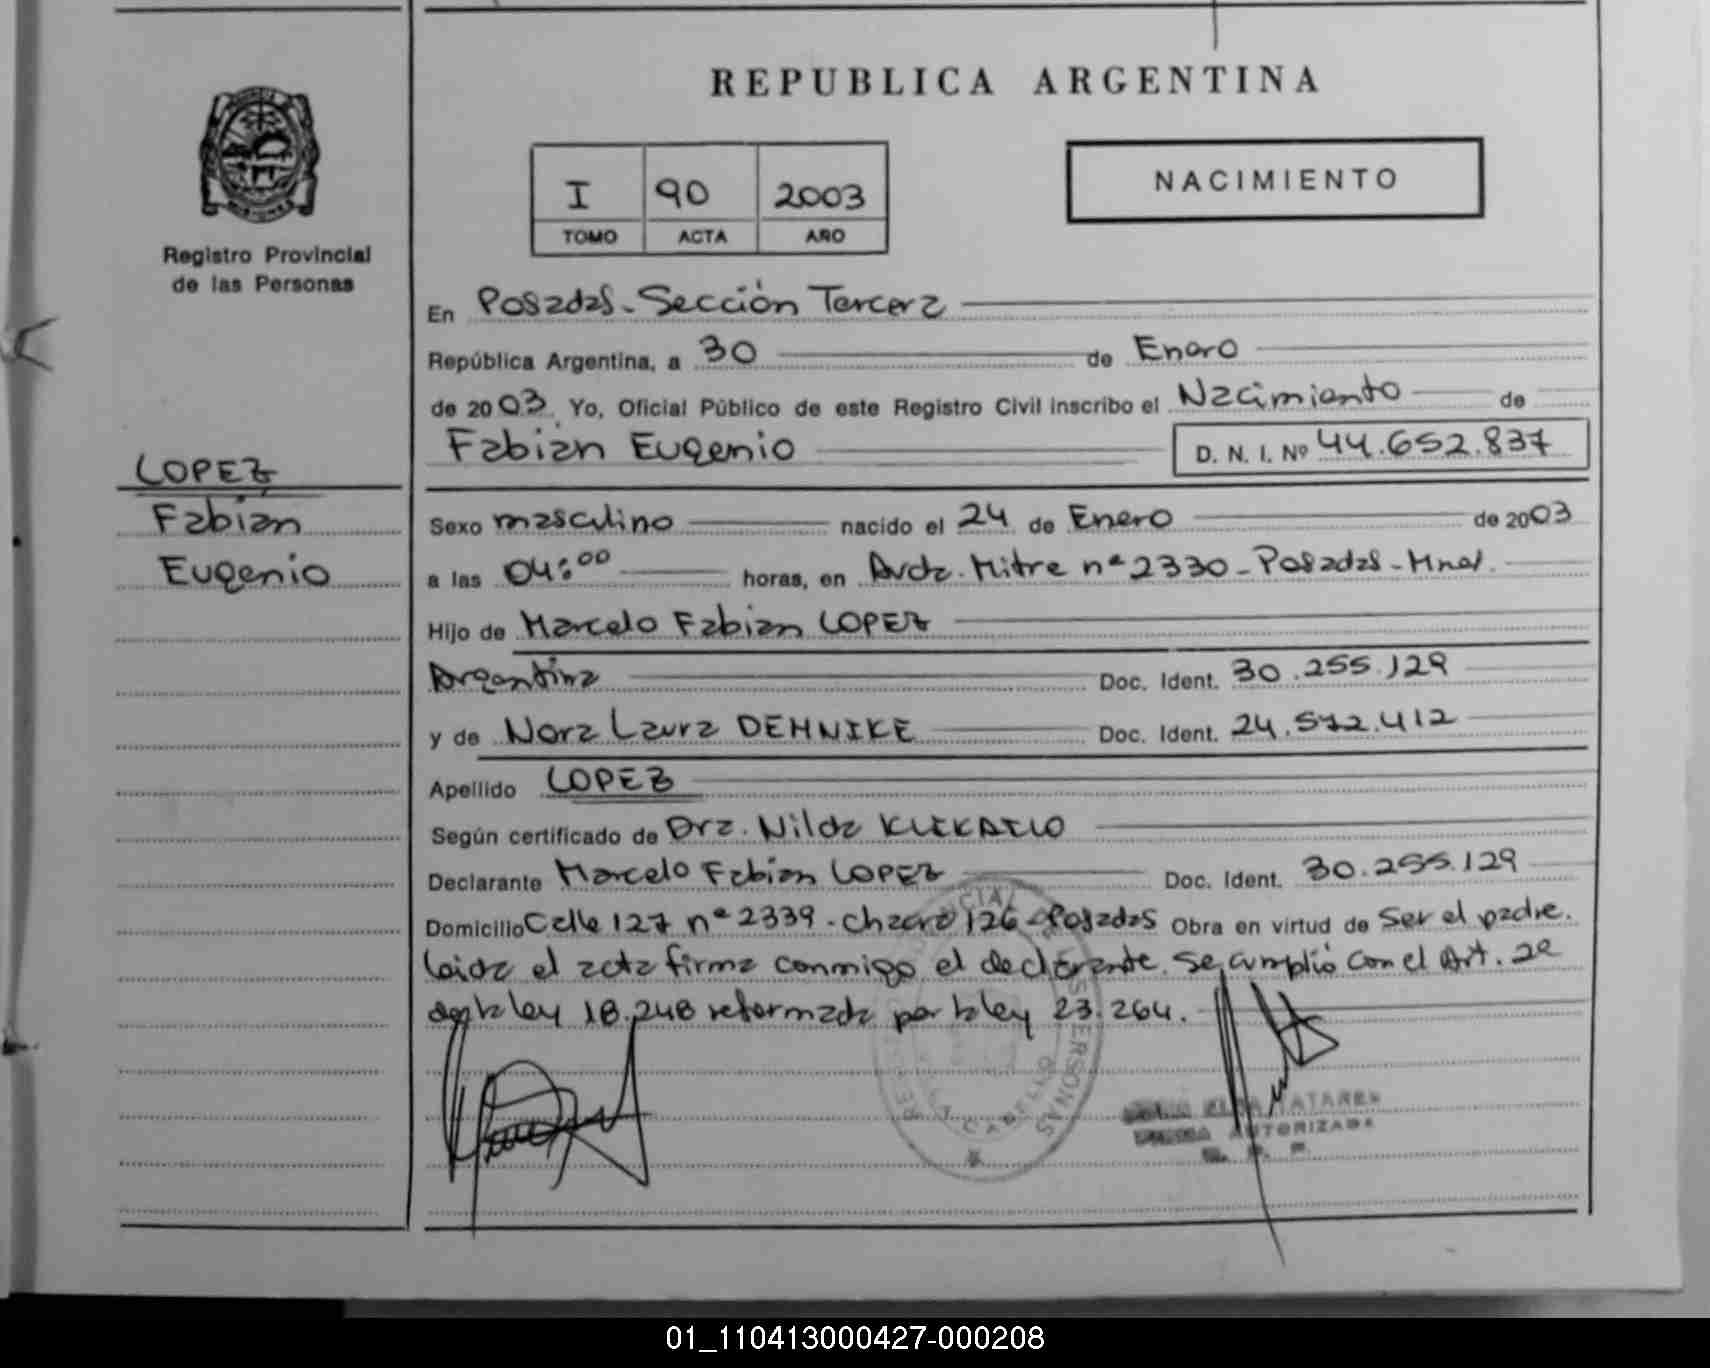 REPUBLICA ARGENTINA
I 90 2003
TOMO ACTA AÑO
NACIMIENTO
Registro Provincial
de las Personas
En Posadas - Sección Tercera
República Argentina, a 30 de Enero
de 2003. Yo, Oficial Público de este Registro Civil inscribo el Nacimiento de
Fabián Eugenio D. N. I. Nº 44.652.837
LOPEZ
Fabián
Eugenio
Sexo masculino nacido el 24 de Enero de 2003
a las 04:00 horas, en Avda. Mitre nº 2330 - Posadas - Mnes.
Hijo de Marcelo Fabian LOPEZ
Argentina Doc. Ident. 30.255.129
y de Nora Laura DEMNIKE Doc. Ident. 24.572.412
Apellido LOPEZ
Según certificado de Dra. Nilda
Declarante Marcelo Fabian LOPEZ Doc. Ident. 30.255.129
Domicilio Calle 127 nº 2339 - Chacra 126 - Posadas Obra en virtud de Ser el padre.
Leida el acta firma conmigo el declarante. Se cumplió con el Art. 2º
de la ley 18.248 reformada por la ley 23.264.
PERSONAS
CABELLO
TATAREN
AUTORIZADA
01_110413000427-000208